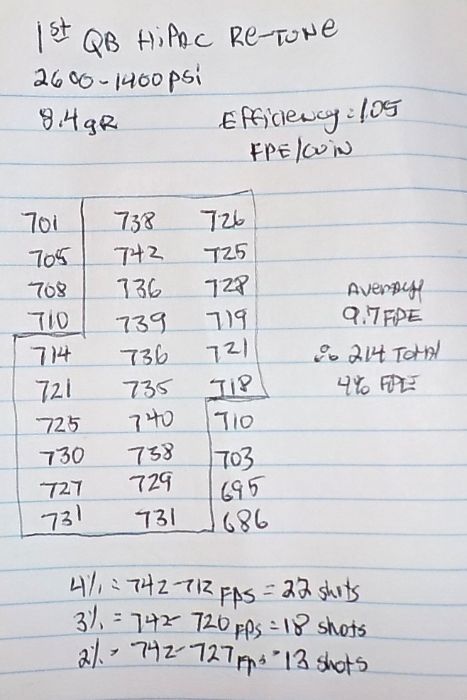 1st QB HiPAC Re-Tune
2600-1400psi
8.4gR Efficiency = 1.05
FPE/CUIN
701 738 726
705 742 725
708 736 728 Average
710 739 719 9.7FPE
714 736 721 ∴ 214 Total
721 735 718 4% FPE
725 740 710
730 738 703
727 729 695
731 731 686
4% = 742-712 FPS = 22 shots
3% = 742-720 FPS = 18 shots
2% = 742-727 FPS = 13 shots